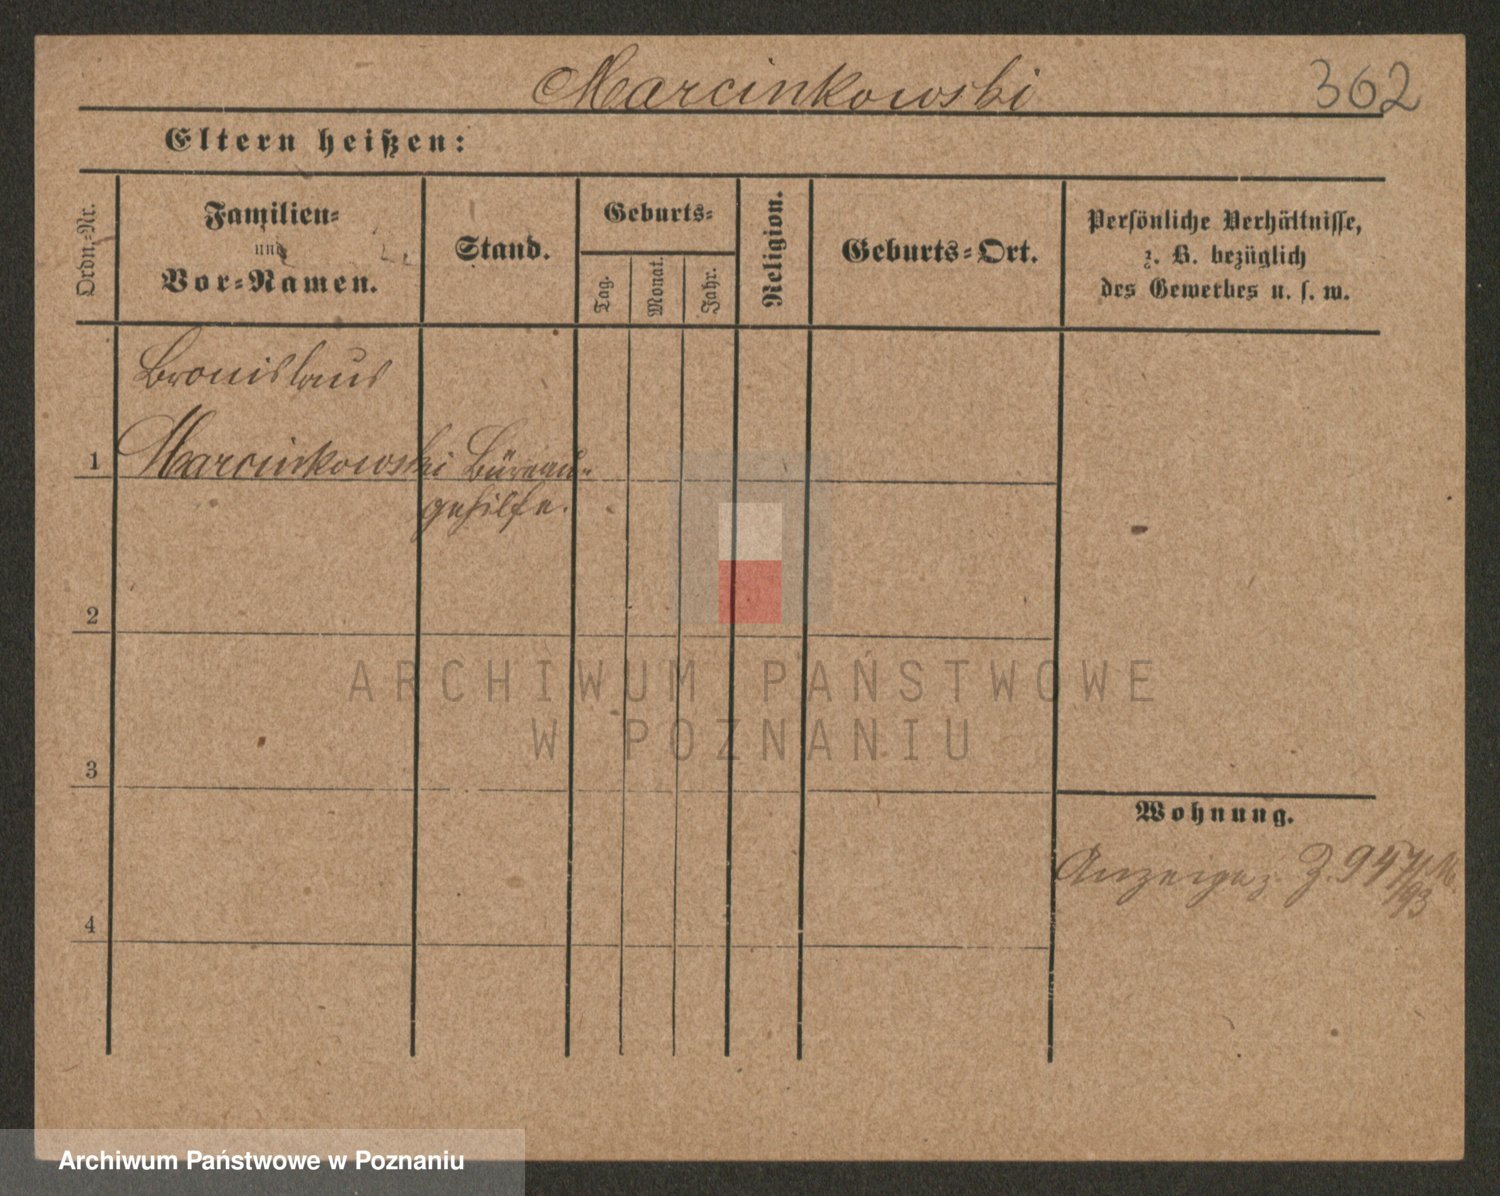 Marcinkowski 362
Eltern heißen:
Ordn.-Nr.
Familien-
und
Vor-Namen.
Stand.
Geburts-
Tag.
Monat.
Jahr.
Religion.
Geburts-Ort.
Persönliche Verhältnisse,
z. B. bezüglich
des Gewerbes u. s. w.
Bronislaus
1 Marcinkowski Büreau-
gehilfe.
2
ARCHIWUM PAŃSTWOWE
W POZNANIU
3
Wohnung.
Z. 947/93
4
Archiwum Państwowe w Poznaniu